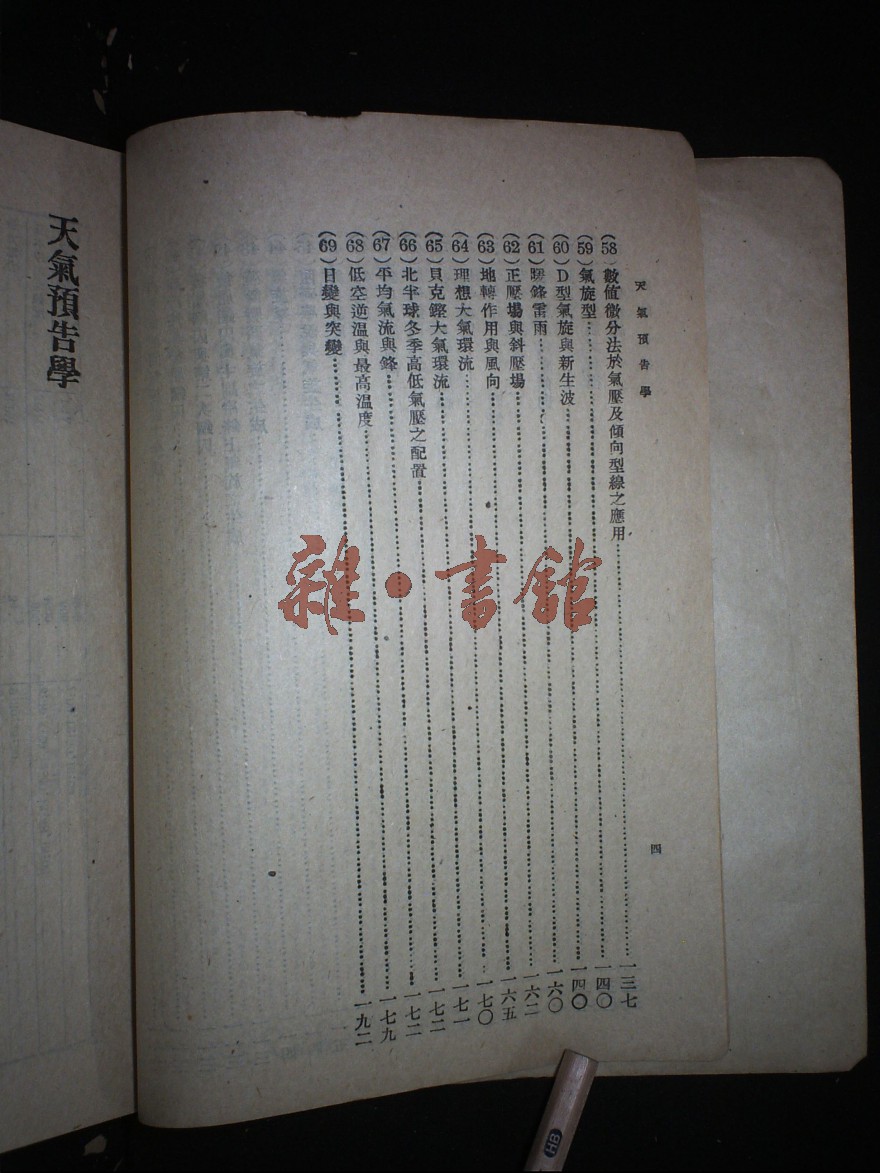 天氣預告學
四
(58)數值微分法於氣壓及傾向型線之應用……一三七
(59)氣旋型……一四〇
(60)D型氣旋與新生波……一四〇
(61)鋒雷雨……一六〇
(62)正壓場與斜壓場……一六二
(63)地轉作用與風向……一六五
(64)理想大氣環流……一七〇
(65)貝克鏗大氣環流……一七一
(66)北半球冬季高低氣壓之配置……一七二
(67)平均氣流與鋒……一七二
(68)低空逆溫與最高溫度……一七九
(69)日變與突變……一九二
天氣預告學
雜·書館
HB